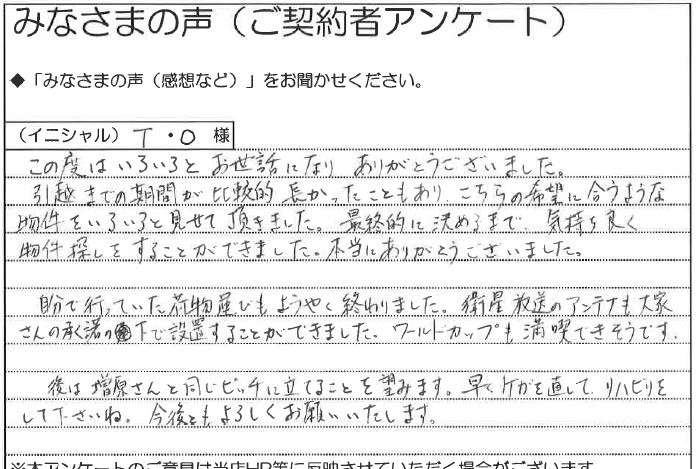 みなさまの声（ご契約者アンケート）
◆「みなさまの声（感想など）」をお聞かせください。
（イニシャル） T・O 様
この度はいろいろと お世話になり ありがとうございました。
引越までの期間が 比較的 長かったこともあり、こちらの希望に合うような
物件をいろいろと見せて頂きました。最終的に決めるまで、気持ち良く
物件探しをすることができました。本当にありがとうございました。
自分で行っていた荷物運びもようやく終わりました。衛星放送のアンテナも大家
さんの承諾の下で設置することができました。ワールドカップも満喫できそうです。
後は増原さんと同じピッチに立てることを望みます。早くケガを直して、リハビリを
して下さいね。今後ともよろしくお願いいたします。
※本アンケートのご意見は当店HP等に反映させていただく場合がございます